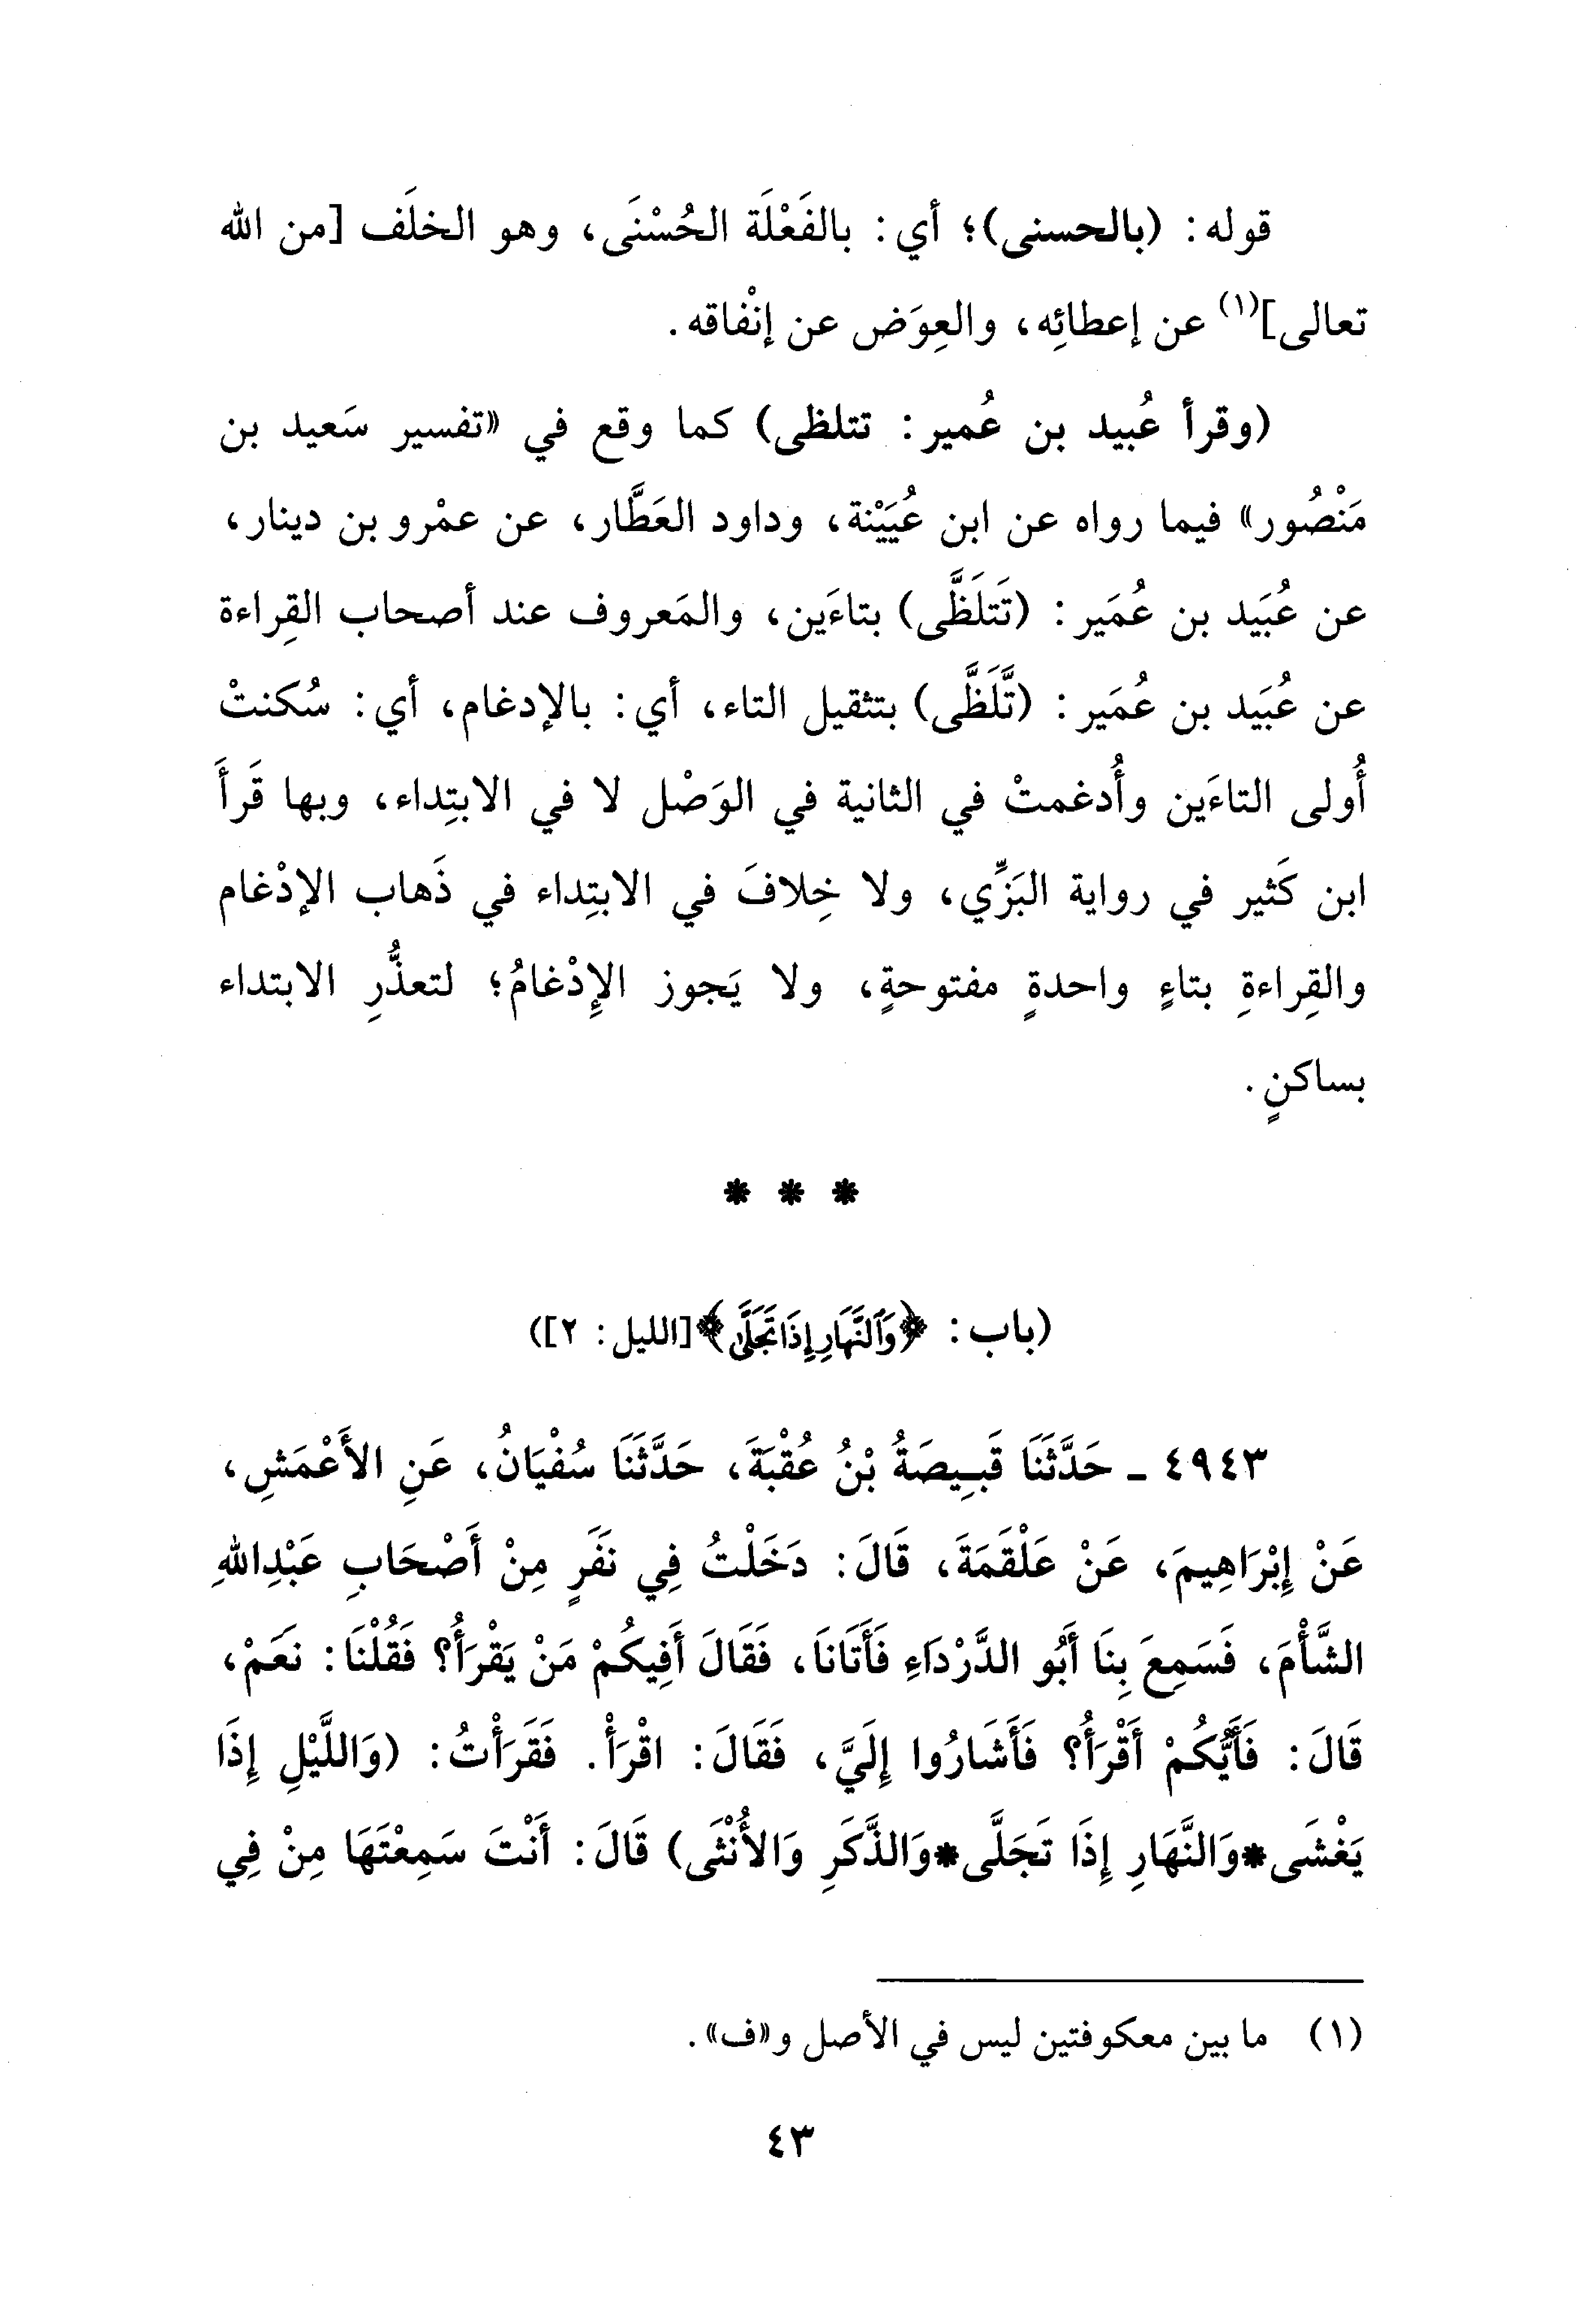 قوله: (بالحسنى)؛ أي: بالفَعْلَة الحُسْنَى، وهو الخلَف [من الله
تعالى](١) عن إعطائِه، والعِوَض عن إنْفاقه.
(وقرأ عُبيد بن عُمير: تتلظى) كما وقع في «تفسير سَعيد بن
مَنْصُور» فيما رواه عن ابن عُيَيْنة، وداود العَطَّار، عن عمْرو بن دينار،
عن عُبَيد بن عُمَير: (تَتلَظَّى) بتاءَين، والمَعروف عند أصحاب القِراءة
عن عُبَيد بن عُمَير: (تَّلَظَّى) بتثقيل التاء، أي: بالإدغام، أي: سُكنتْ
أُولى التاءَين وأُدغمتْ في الثانية في الوَصْل لا في الابتِداء، وبها قَرأَ
ابن كَثير في رواية البَزِّي، ولا خِلافَ في الابتِداء في ذَهاب الإدْغام
والقِراءةِ بتاءٍ واحدةٍ مفتوحةٍ، ولا يَجوز الإِدْغامُ؛ لتعذُّرِ الابتداء
بساكنٍ.
* * *
(باب: ﴿وَٱلنَّهَارِ إِذَا تَجَلَّىٰ﴾[الليل: ٢])
٤٩٤٣ - حَدَّثَنَا قَبِيصَةُ بْنُ عُقْبَةَ، حَدَّثَنَا سُفْيَانُ، عَنِ الأَعْمَشِ،
عَنْ إِبْرَاهِيمَ، عَنْ عَلْقَمَةَ، قَالَ: دَخَلْتُ فِي نَفَرٍ مِنْ أَصْحَابِ عَبْدِاللهِ
الشَّأْمَ، فَسَمِعَ بِنَا أَبُو الدَّرْدَاءِ فَأَتَانَا، فَقَالَ أَفِيكُمْ مَنْ يَقْرَأُ؟ فَقُلْنَا: نَعَمْ،
قَالَ: فَأَيُّكُمْ أَقْرَأُ؟ فَأَشَارُوا إِلَيَّ، فَقَالَ: اقْرَأْ. فَقَرَأْتُ: (وَاللَّيْلِ إِذَا
يَغْشَى*وَالنَّهَارِ إِذَا تَجَلَّى*وَالذَّكَرِ وَالأُنْثَى) قَالَ: أَنْتَ سَمِعْتَهَا مِنْ فِي
(١) ما بين معكوفتين ليس في الأصل و«ف».
٤٣